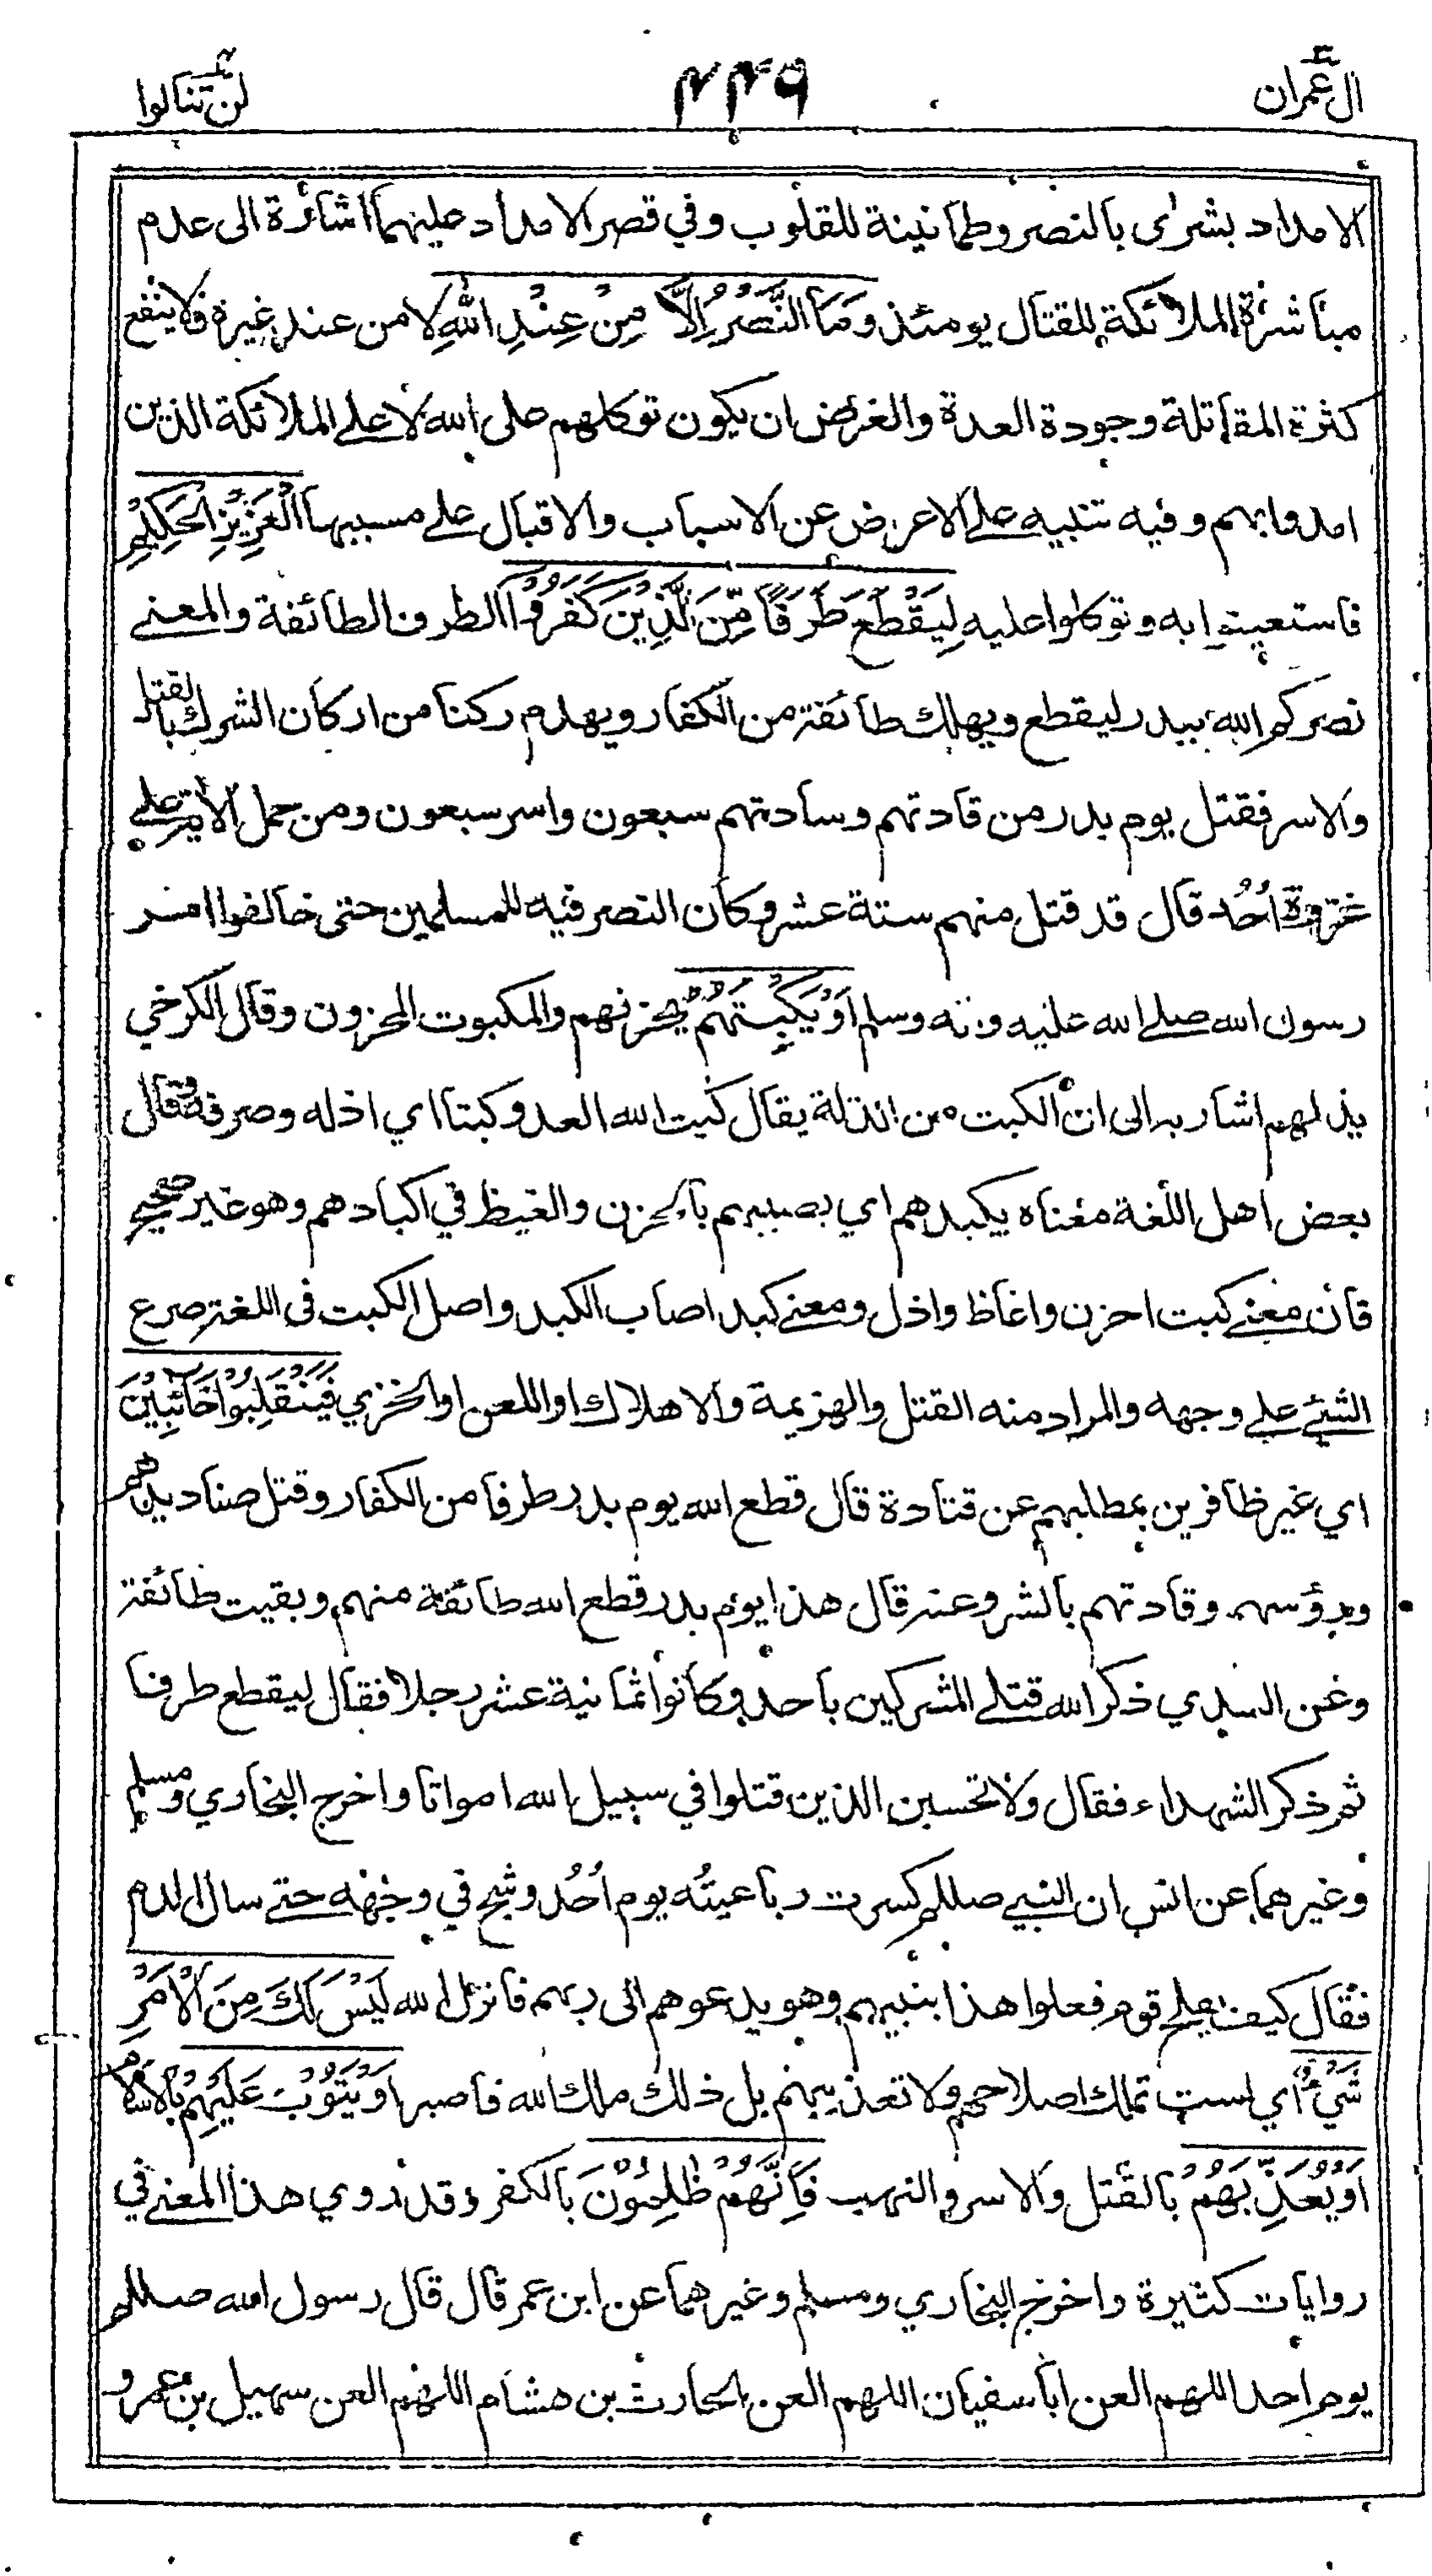 ال عمران
٤٤٩
لن تنالوا
الامداد بشرى بالنصر وطمانينة للقلوب وفي قصر الامداد عليهما اشارة الى عدم
مباشرة الملائكة للقتال يومئذ وَمَا النَّصْرُ اِلَّا مِنْ عِنْدِ اللهِ لا من عند غيره فلا ينفع
كثرة المقاتلة وجودة العدة والغرض ان يكون توكلهم على الله لا على الملائكة الذين
امدوا بهم وفيه تنبيه على الاعراض عن الاسباب والاقبال على مسببها الْعَزِيْزِ الْحَكِيْمِ
فاستعينوا به وتوكلوا عليه لِيَقْطَعَ طَرَفًا مِّنَ الَّذِيْنَ كَفَرُوْا الطرف الطائفة والمعنى
نصركم الله ببدر ليقطع ويهلك طائفة من الكفار ويهدم ركنا من اركان الشرك بالقتل
والاسر فقتل يوم بدر من قادتهم وسادتهم سبعون واسر سبعون ومن حمل الأية على
غزوة اُحُد قال قد قتل منهم ستة عشر وكان النصر فيه للمسلمين حتى خالفوا امر
رسول الله صلى الله عليه وآله وسلم اَوْ يَكْبِتَهُمْ يحزنهم والمكبوت المحزون وقال الكرخي
يذلهم اشار به الى ان الكبت من الذلة يقال كبت الله العدو كبتا اي اذله وصرفه وقال
بعض اهل اللغة معناه يكبدهم اي يصيبهم بالحزن والغيظ في اكبادهم وهو غير صحيح
فان معنى كبت احزن واغاظ واذل ومعنى كبد اصاب الكبد واصل الكبت فى اللغة صرع
الشئ على وجهه والمراد منه القتل والهزيمة والاهلاك او اللعن او الخزي فَيَنْقَلِبُوْا خَائِبِيْنَ
اي غير ظافرين بمطلبهم عن قتادة قال قطع الله يوم بدر طرفا من الكفار وقتل صناديدهم
ورؤسهم وقادتهم بالشر وعنه قال هذا يوم بدر قطع الله طائفة منهم وبقيت طائفة
وعن السدي ذكر الله قتلى المشركين باحد وكانوا ثمانية عشر رجلا فقال ليقطع طرفا
ثم ذكر الشهداء فقال ولا تحسبن الذين قتلوا في سبيل الله امواتا واخرج البخاري ومسلم
وغيرهما عن انس ان النبي صللم كسرت رباعيته يوم اُحُد وشج في وجهه حتى سال الدم
فقال كيف يفلح قوم فعلوا هذا بنبيهم وهو يدعوهم الى ربهم فانزل الله لَيْسَ لَكَ مِنَ الْاَمْرِ
شَيْءٌ اي لست تملك اصلاحهم ولا تعذيبهم بل ذلك ملك الله فاصبر اَوْ يَتُوْبَ عَلَيْهِمْ بالاسلام
اَوْ يُعَذِّبَهُمْ بالقتل والاسر والنهب فَاِنَّهُمْ ظٰلِمُوْنَ بالكفر وقد روي هذا المعنى في
روايات كثيرة واخرج البخاري ومسلم وغيرهما عن ابن عمر قال قال رسول الله صللم
يوم احد اللهم العن ابا سفيان اللهم العن الحارث بن هشام اللهم العن سهيل بن عمرو